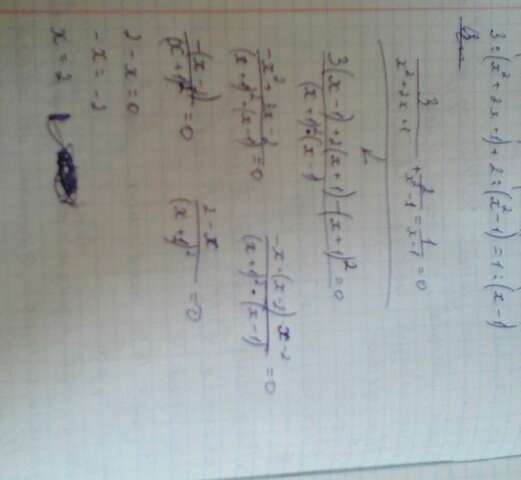 3:(x²+2x+1)+2:(x²-1)=1:(x-1)
3/(x²+2x+1) + 2/(x²-1) = 1/(x-1) = 0
(3(x-1)+2(x+1)-(x+1)²)/((x+1)²·(x-1)) = 0
(-x²+3x-2)/((x+1)²·(x-1)) = 0
(-x·(x-1) x-2)/((x+1)²·(x-1)) = 0
(2-x)/(x+1)² = 0
2-x=0
-x=-2
x=2